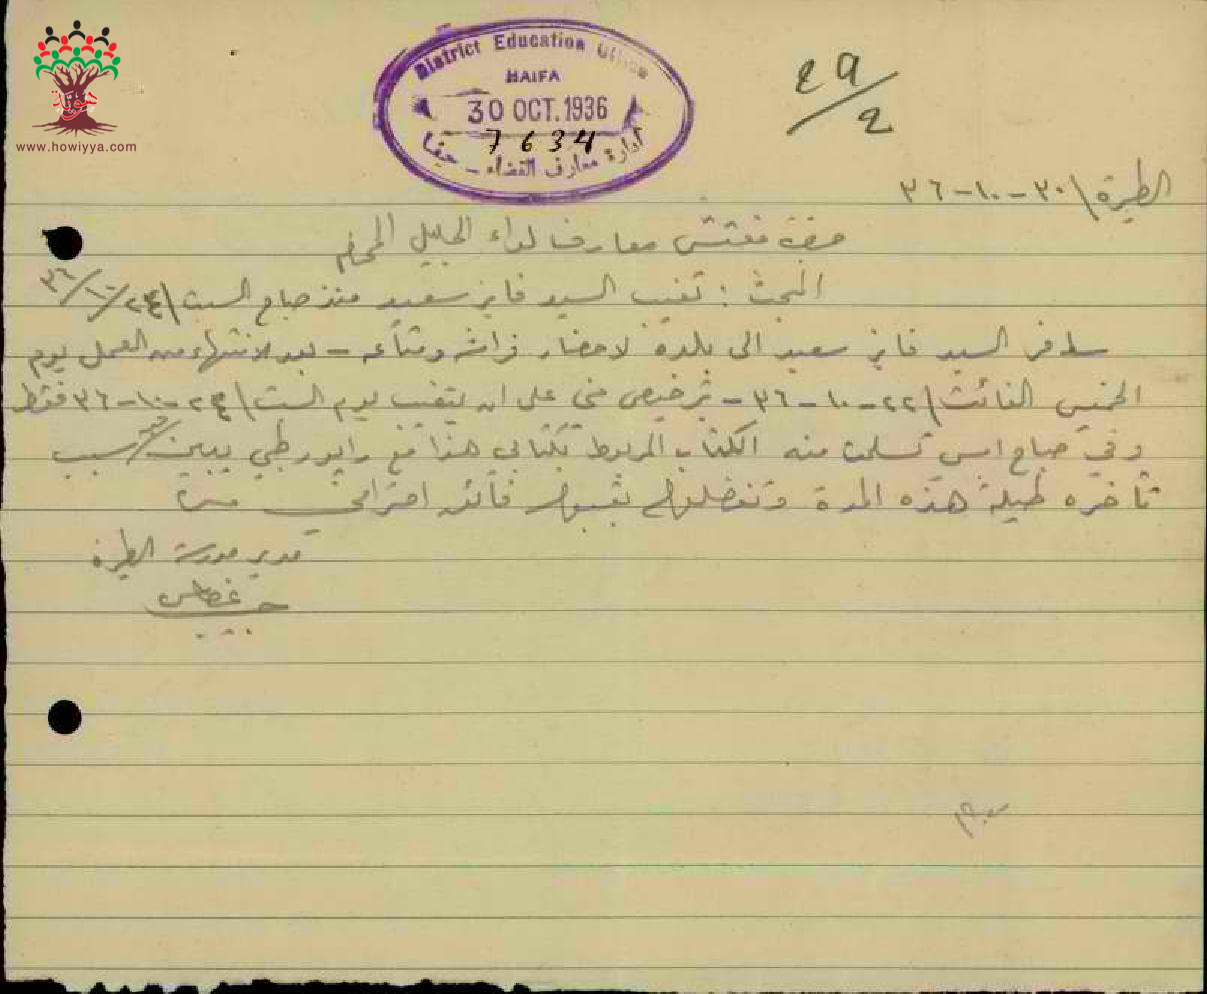 هوية
www.howiyya.com
District Education Office
HAIFA
30 OCT. 1936
7634
ادارة معارف القضاء - حيفا
29/2
الطيرة \ ٣٠-١٠-٣٦
حضرة مفتش معارف لواء الجليل المحترم
البحث : تغيب السيد فايز سعيد منذ صباح السبت \ ٢٤/١٠/٣٦
سافر السيد فايز سعيد الى بلدة لاحضار فراشه ومتاعه - بعد الانتهاء من العمل يوم
الخميس الفائت \ ٢٢-١٠-٣٦ - بترخيص مني على ان يتغيب يوم السبت \ ٢٤-١٠-٣٦ فقط
وفي صباح امس تسلمت منه الكتاب المربوط بكتابي هذا مع رابور طبي يبين سبب
تأخره طيلة هذه المدة وتفضلوا بقبول فائق احترامي
مدير مدرسة الطيرة